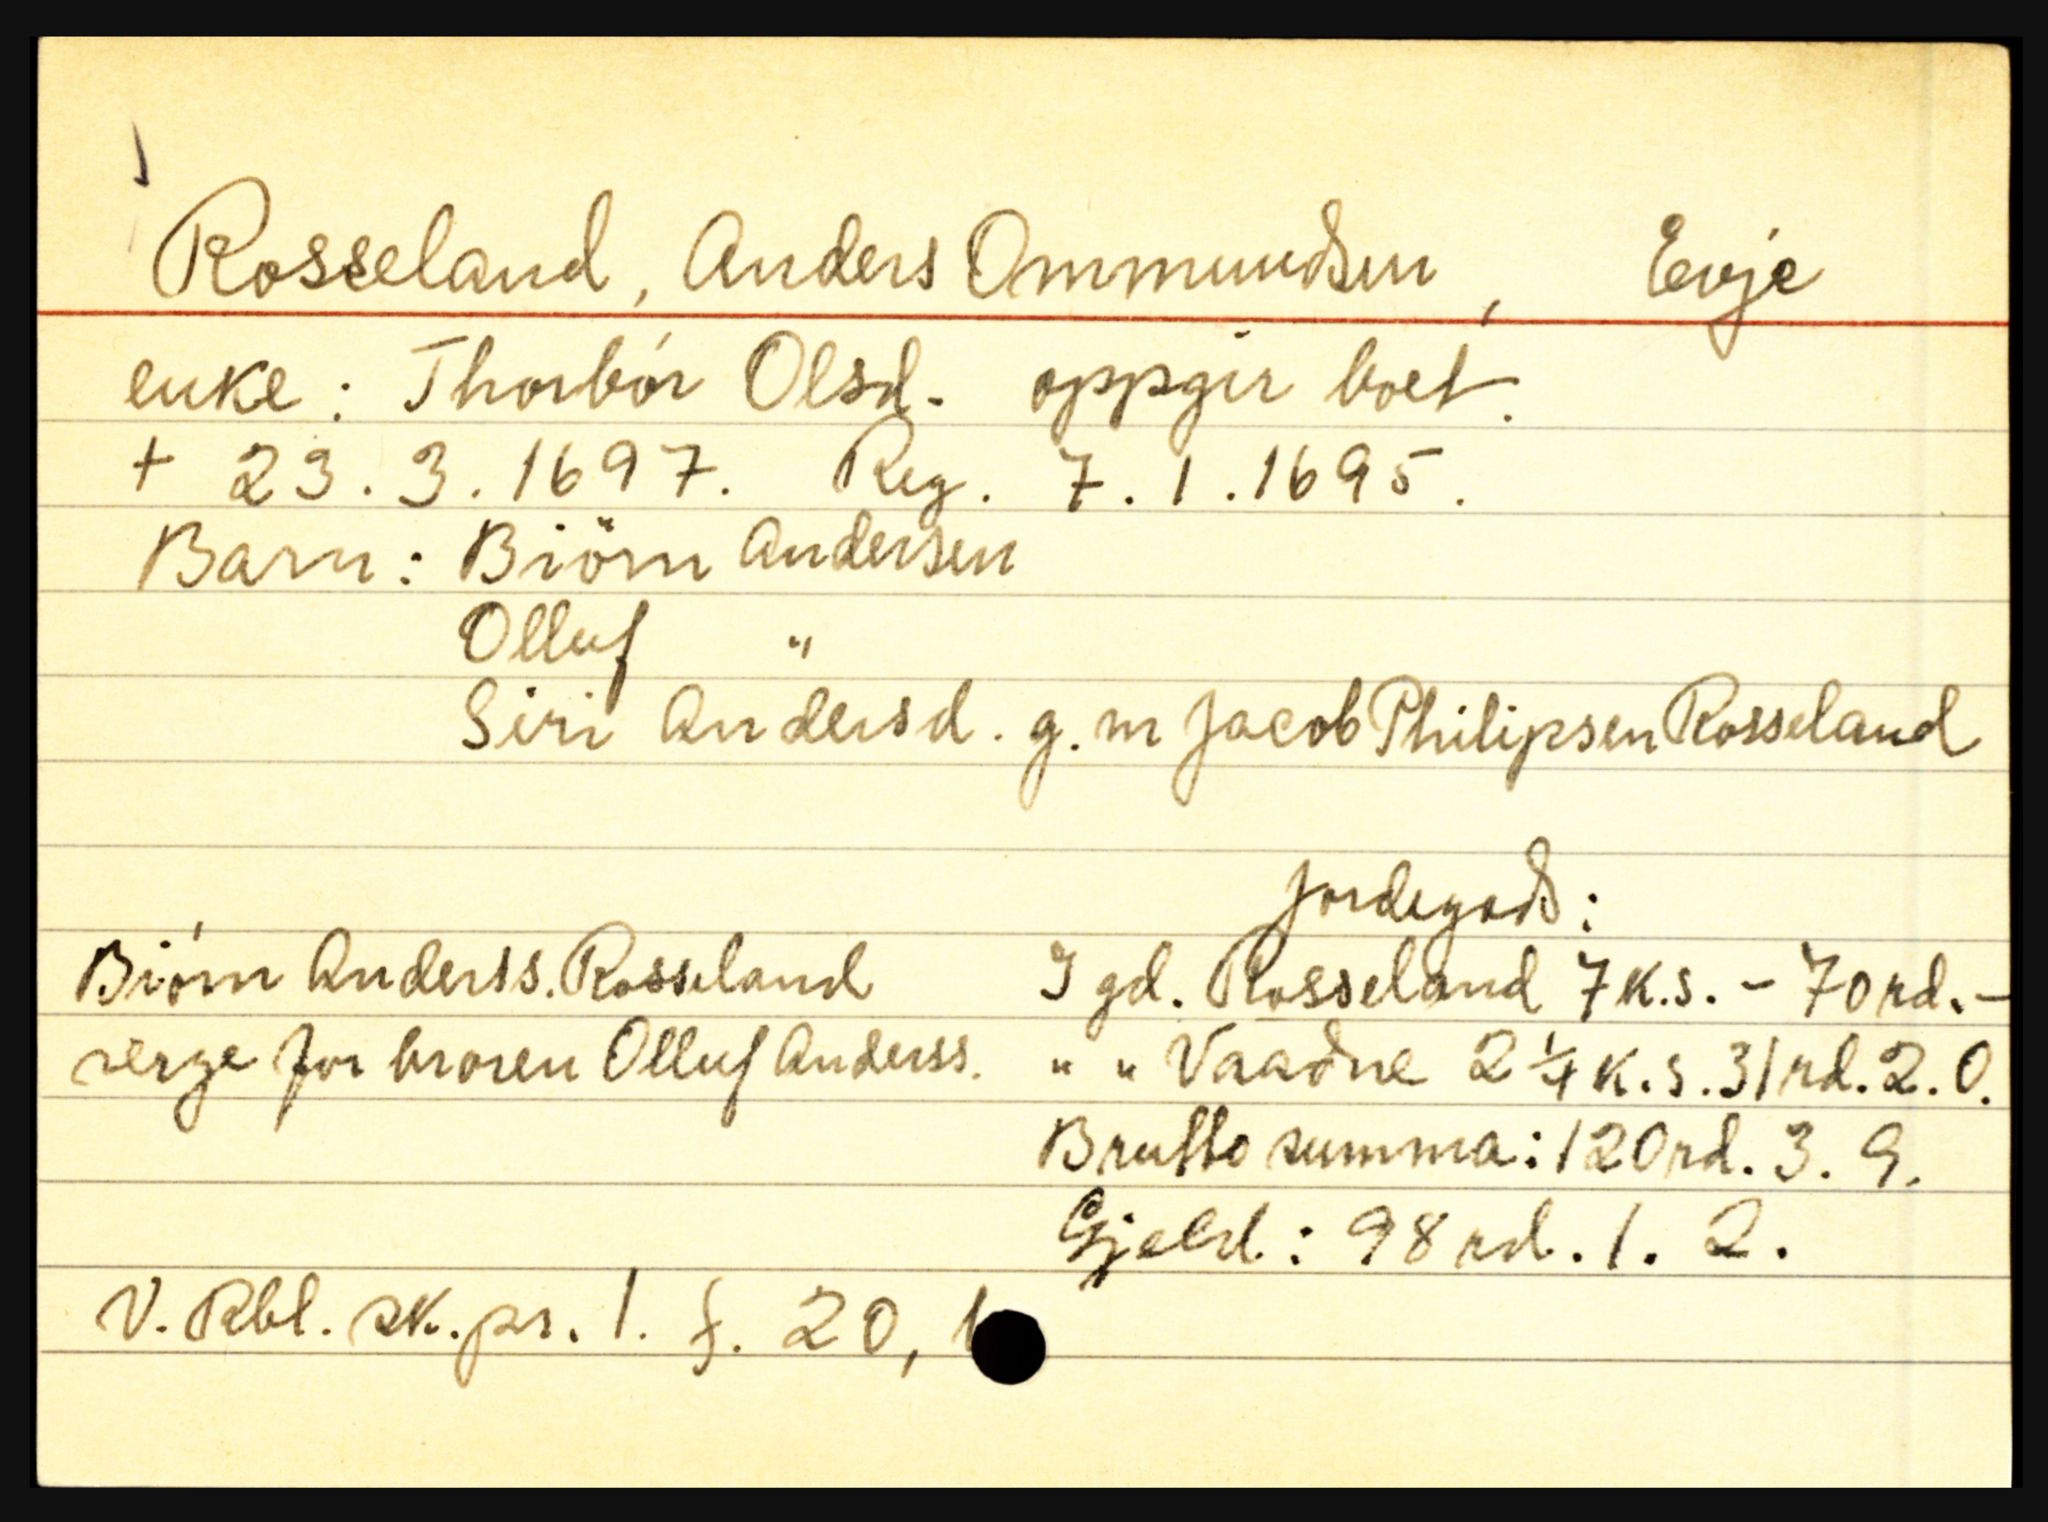 Rosseland, Anders Ommundsen, Evje
enke: Thorbór Olsd. oppgir boet.
+ 23.3.1697. Reg. 7.1.1695.
Barn: Biörn Andersen
Olluf "
Siri Andersd. g.m Jacob Philipsen Rosseland
Jordegods:
Biórn Anderss. Rosseland
verge for broren Olluf Anderss.
I gd. Rosseland 7 k.s. - 70 rd. -
" " Vaadne 2 1/4 k.s. 31 rd. 2. 0.
Brutto summa: 120 rd. 3. 9.
Gjeld: 98 rd. 1. 2.
V. Rbl. sk.pr. 1. f. 20,